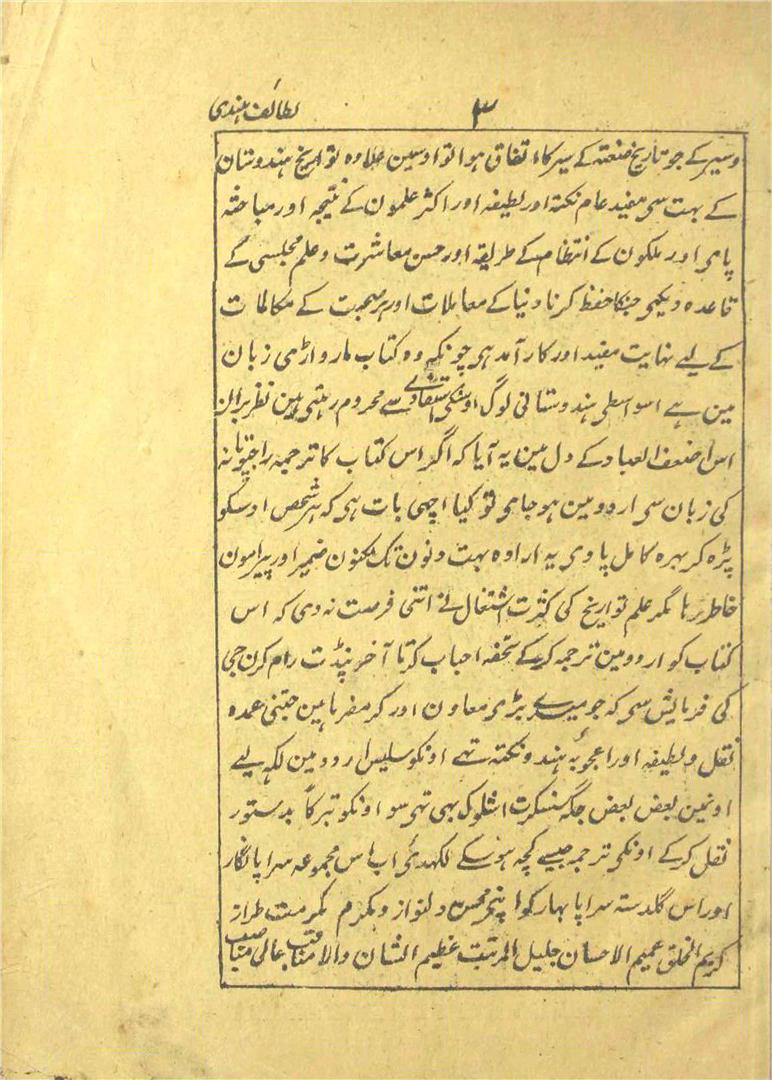 ۳ لطائف ہندی
وسیر کے جو تاریخ صنعتہ کے سیر کا اتفاق ہوا تو اوسین علاوہ تواریخ ہندوستان
کے بہت سی مفید عام نکتہ اور لطیفہ اور اکثر علمون کے نتیجہ اور مباحثہ
پای اور ملکون کے انتظام کے طریقہ اور حسن معاشرت و علم مجلسی کے
قاعدہ دیکھی جنکا حفظ کرنا دنیا کے معاملات اور ہر صحبت کے مکالمات
کے لیے نہایت مفید اور کار آمد ہی چونکہ وہ کتاب مارواڑی زبان
مین ہے اسواسطی ہندوستانی لوگ اوسکی استفادے سے محروم رہتی ہین نظر بران
اس اضعف العباد کے دل مین یہ آیا کہ اگر اس کتاب کا ترجمہ راجپوتانہ
کی زبان سی اردو مین ہو جاہی تو کیا اچھی بات ہی کہ ہر شخص اوسکو
پڑہ کر بہرہ کامل پاوی یہ ارادہ بہت دنون تک مکنون ضمیر اور پیرامون
خاطر رہا مگر علم تواریخ کی کثرت اشتغال نے اتنی فرصت نہ دی کہ اس
کتاب کو اردو مین ترجمہ کرکے تحفہ احباب کرتا آخر پنڈت رام کرن جی
کی فرمایش سی کہ جو میرے بڑی معاون اور کرمفرما ہین جتنی عمدہ
نقل و لطیفہ اور اعجوبہ ہند و نکتہ تہے اونکو سلیس اردو مین لکہ لیے
اونین بعض بعض جگہ سنسکرت اشلوک بہی تہی سو اونکو تبرکاً بدستور
نقل کرکے اونکی ترجمہ جیسے کچہ ہو سکے لکھدئی اب اس مجموعہ سراپا نگار
اور اس گلدستہ سراپا بہار کو اپنی محسن دلنواز و مکرم مکرمت طراز
کریم الخلق عمیم الاحسان جلیل المرتبت عظیم الشان والا مناقب عالی مناصب